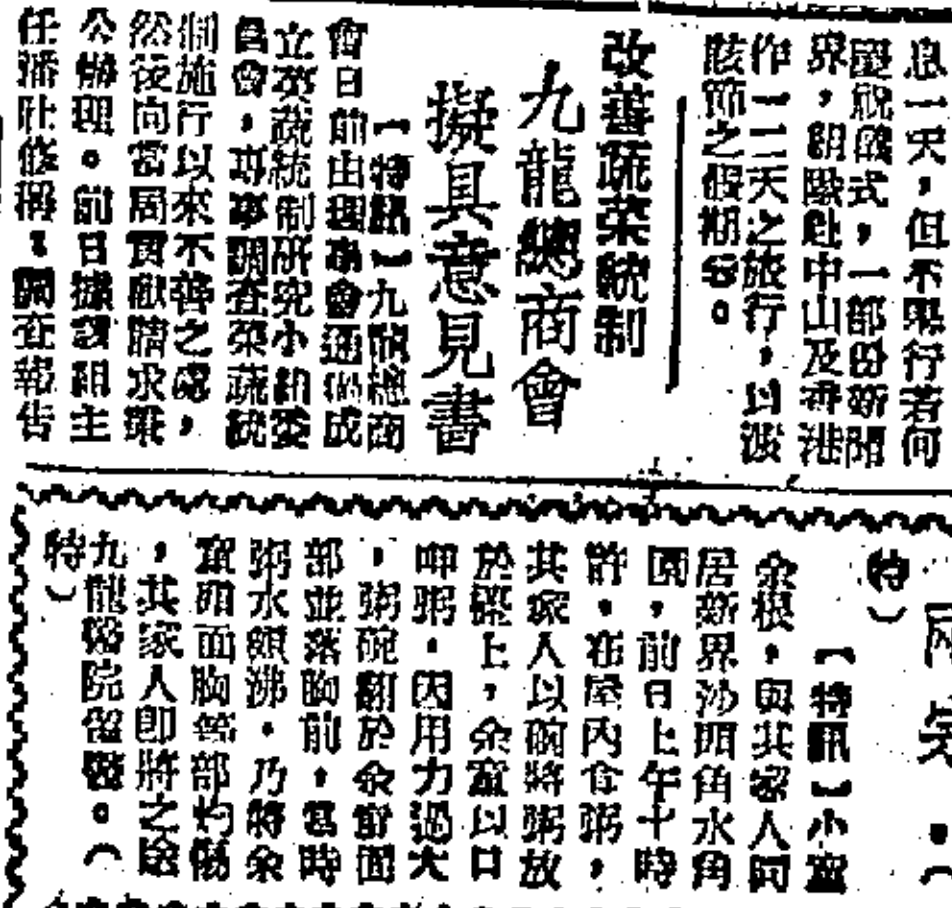 息一天，但不果行若何
慶祝儀式，一部份新聞
界，則擬赴中山及香港
作一二天之旅行，以渡
該節之假期云。
改善蔬菜統制
九龍總商會
擬具意見書
【特訊】九龍總商
會日前由理事會通過成
立菜蔬統制研究小組委
員會，專事調查菜蔬統
制施行以來不善之處，
然後向當局貢獻請求
公辦理。前日據該組主
任潘 修稱：調查報告
特）
【特訊】小童
余根，與其家人同
居新界沙頭角水角
園，前日上午十時
許，在屋內食粥，
其家人以碗將粥放
於檯上，余童以口
呷粥，因用力過大
，粥碗翻於余童面
部並落胸前，當時
粥水頗沸，乃將余
童頭面胸等部灼傷
，其家人即將之送
九龍醫院留醫。（
特）